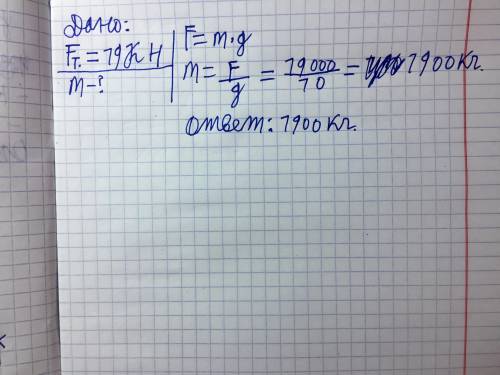 Дано:
Fт. = 19 КН
m-?
F = m·g
m = F/g = 19000/10 = 1900 кг.
Ответ: 1900 кг.